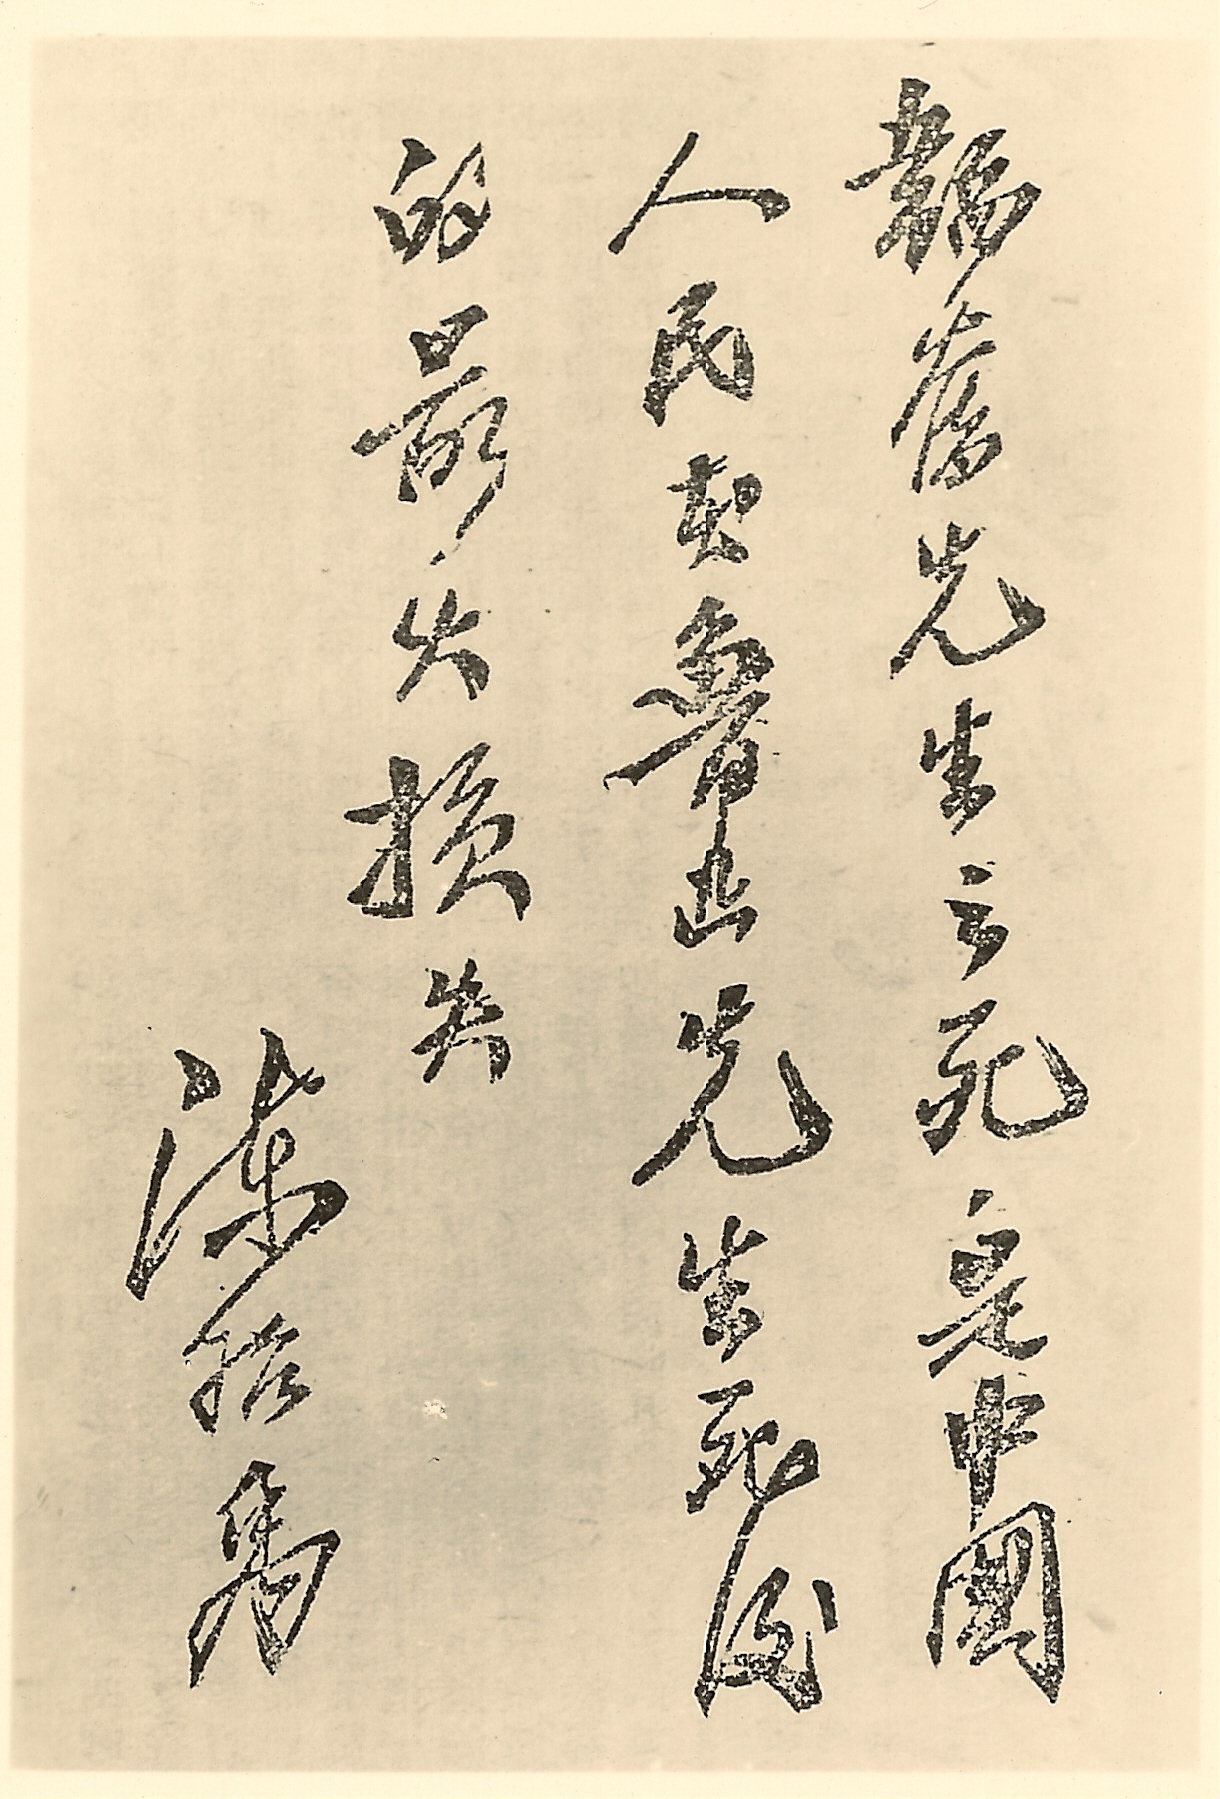 韜奮先生之死是中國
人民魯迅先生死後
的最大損失
陳紹禹